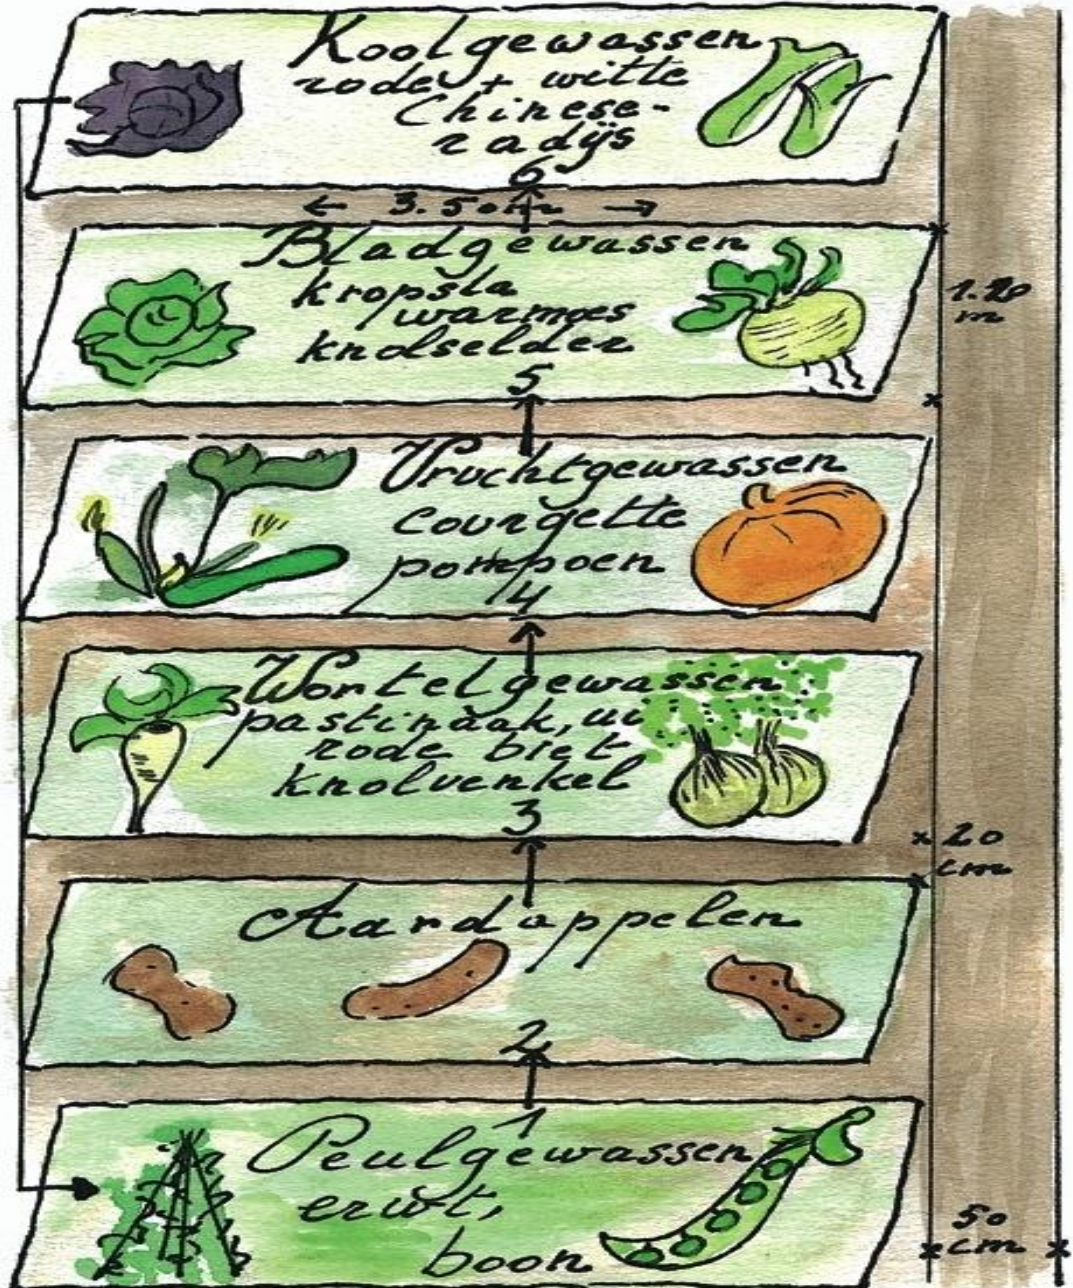 Koolgewassen
rode + witte
Chinese-
radijs
6
← 3.50 m →
Bladgewassen
kropsla
warmoes
knolselder
5
1.20
m
Vruchtgewassen
courgette
pompoen
4
Wortelgewassen
pastinaak, ui
rode biet
knolvenkel
3
20
cm
Aardappelen
2
1
Peulgewassen
erwt,
boon
50
cm